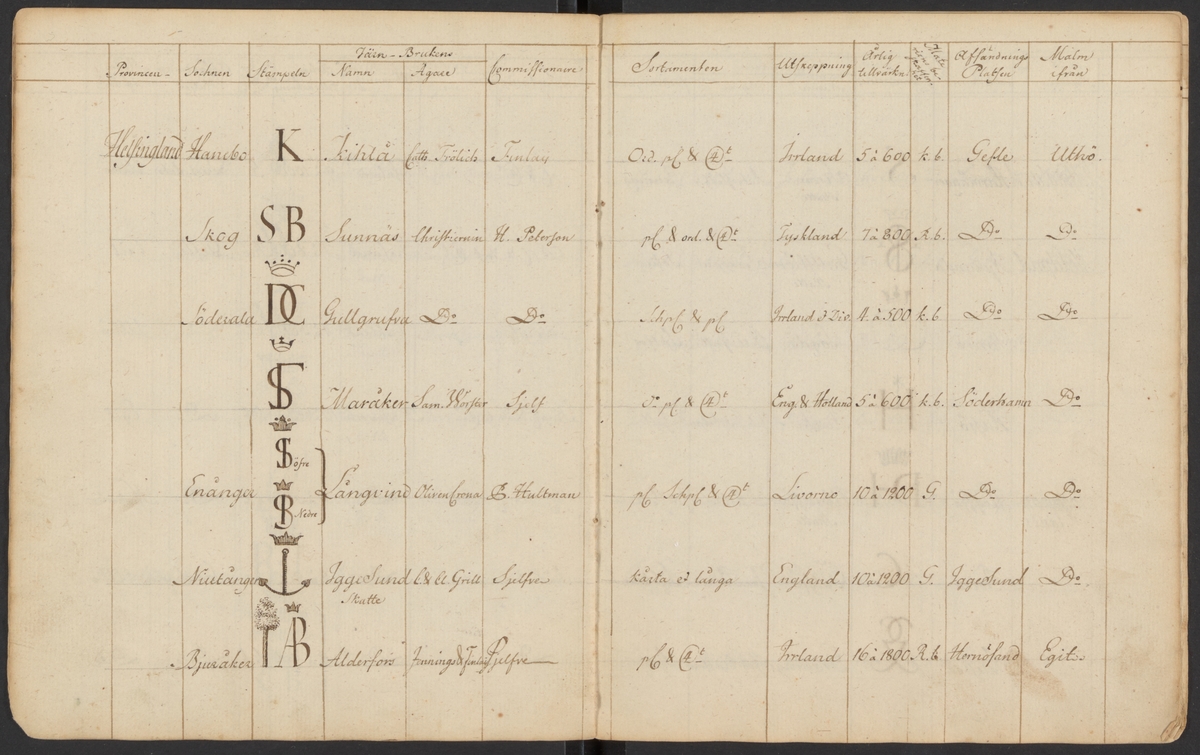 Järn-Brukens
Provincen Sochnen Stämpeln Namn Ägare Commissionaire Sortamenten Utskeppning Årlig tillvärkn. Afsändnings Platsen Malm ifrån
Helsingland Hanebo K Kihlå Cath. Frölich Finlay Ord. pl & 4t Irrland 5 à 600 k.b. Gefle Uthö.
Skog SB Sunnäs Christiernin H. Peterson pl & ord. & 4t Tyskland 7 à 800 R.b. Do Do
Söderala DC Gullgrufva Do Do Schpl & pl Irrland & Div. 4 à 500 k.b. Do Do
Maråker Sam. Worster Sjelf Do pl & 4t Eng. & Holland 5 à 600 k.b. Söderhamn Do
S öfre
Enånger Långvind Oliven Crona B. Hultman pl Schpl & 4t Livorno 10 à 1200 G. Do Do
B Nedre
Niutånger Iggesund C & Cl Grill Sjelfve korta & långa England 10 à 1200 G. Iggesund Do
Skatte
Bjuråker AB Alderfors Jennings & Finlay Sjelfve pl & 4t Irrland 16 à 1800 R.b. Hernösand Egit.